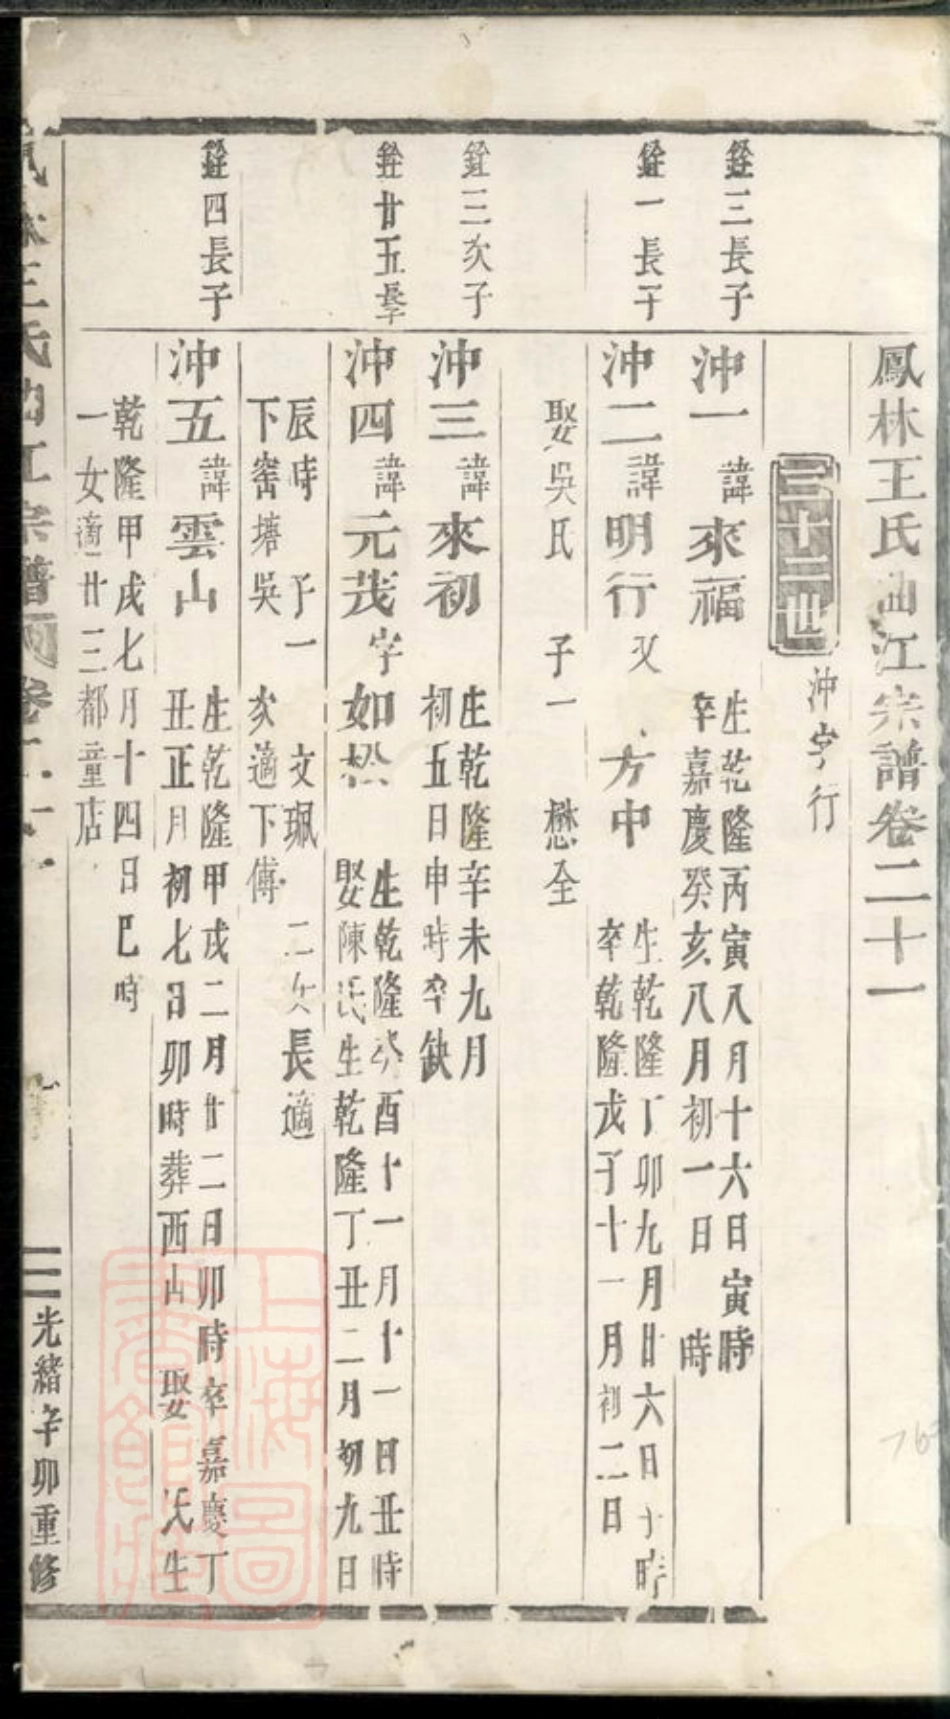 鳳林王氏曲江宗譜卷二十一
三十二世
沖字行
銓三長子
沖一諱來福
生乾隆丙寅八月十六日寅時
卒嘉慶癸亥八月初一日 時
銓一長子
沖二諱明行又 方中
生乾隆丁卯九月廿六日 時
卒乾隆戊子十一月初二日
娶吳氏 子一 懋全
銓三次子
沖三諱來初
生乾隆辛未九月
初五日申時卒缺
銓廿五長子
沖四諱元茂字如松
生乾隆癸酉十一月十一日丑時
娶陳氏生乾隆丁丑二月初九日
辰時 子一 文珮 二女長適
下窑塘吳 次適下傅
銓四長子
沖五諱雲山
生乾隆甲戌二月廿二日卯時卒嘉慶丁
丑正月初七日卯時葬西山 娶 氏生
乾隆甲戌七月十四日巳時
一女適廿三都童店
鳳林王氏曲江宗譜
光緒辛卯重修
上海圖書館藏